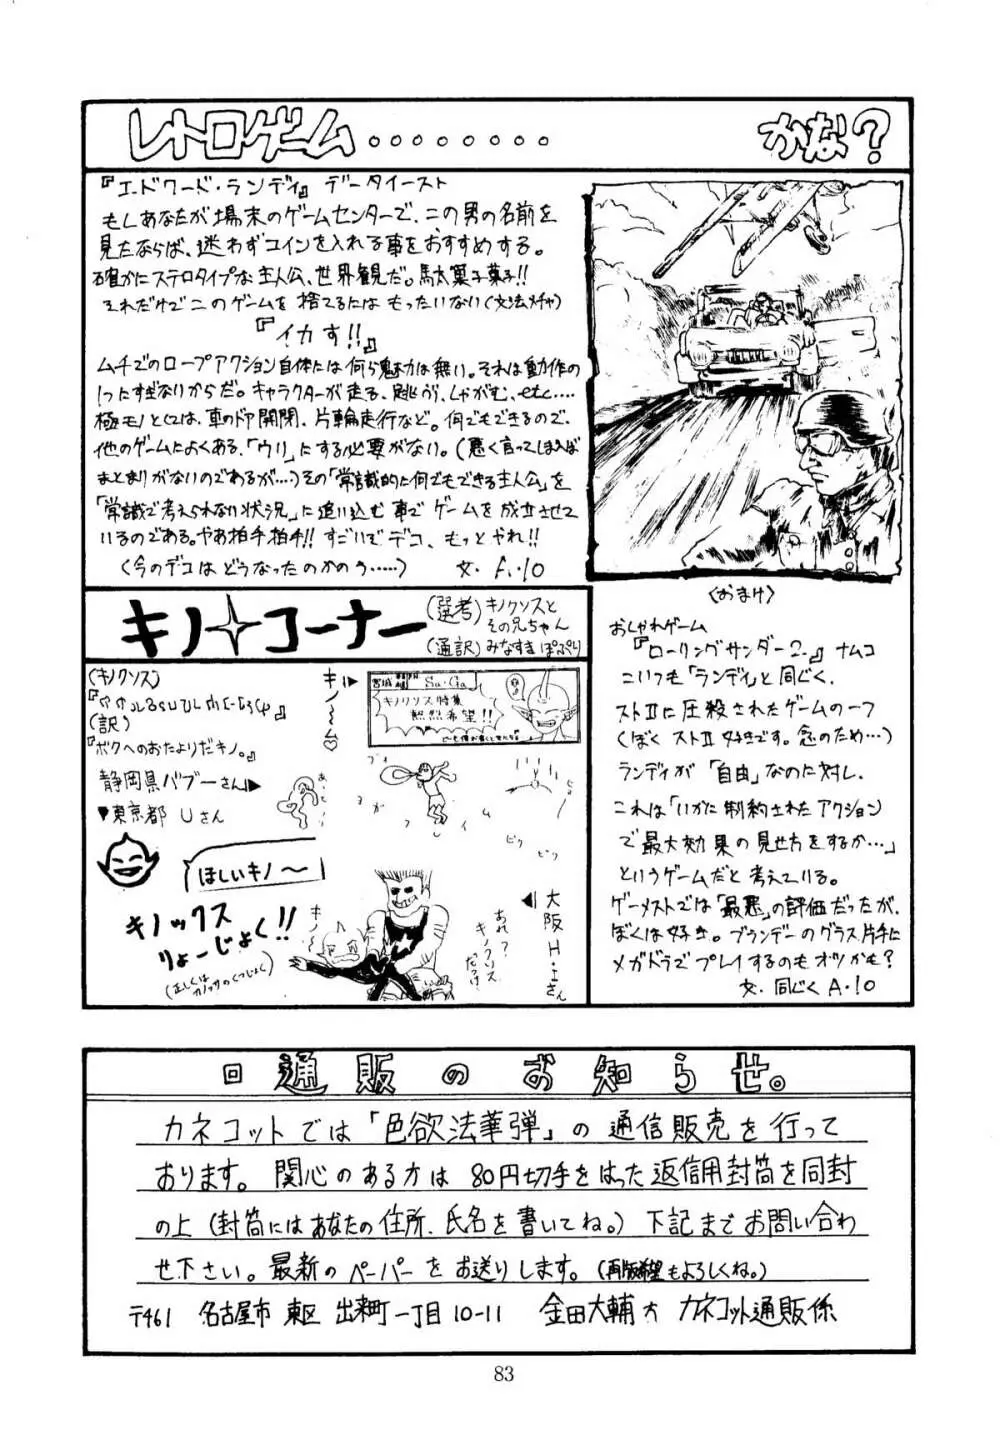 レトロゲーム・・・・・・・・ かな?
『エドワード・ランディ』データイースト
もしあなたが場末のゲームセンターで、この男の名前を
見たならば、迷わずコインを入れる事をおすすめする。
確かにステロタイプな主人公、世界観だ。馬太菓子菓子!!
それだけでこのゲームを捨てるにはもったいない(文法メチャ)
『イカす!!』
ムチでのロープアクション自体には何ら魅力は無い。それは動作の
1つにすぎないからだ。キャラクターが走る、跳ぶ、しゃがむ、etc....
極モノとしては、車のドア開閉、片輪走行など。何でもできるので、
他のゲームによくある、「ウリ」にする必要がない。(悪く言ってしまえば
まとまりがないのであるが‥‥)その「常識的に何でもできる主人公」を
「常識で考えられない状況」に追い込む事でゲームを成立させて
いるのである。やあ拍手拍手!! すごいでデコ、もっとやれ!!
(今のデコはどうなったのかのう‥‥‥) 文. A.10
〈おまけ〉
おしゃれゲーム
『ローリングサンダー2.』ナムコ
こいつも「ランディ」と同じく、
ストⅡに圧殺されたゲームの一つ
(ぼくストⅡ好きです。念のため…)
ランディが「自由」なのに対し、
これは「いかに制約されたアクション
で最大効果の見せ方をするか…」
というゲームだと考えている。
ゲーメストでは「最悪」の評価だったが、
ぼくは好き。ブランデーのグラス片手に
メガドラでプレイするのもオツかも?
文. 同じくA.10
キノ コーナー
(選考)キノクソスと
その兄ちゃん
(通訳)みなすきぽぷり
(キノクソス)
(訳)
『ボクへのおたよりだキノ。』
静岡県バブーさん▶
▼東京都 Uさん
キノ〜〜ム♡
宮城 Su・Ga
キノクソス特集
熱烈希望!!
ブィ
ム
ピク ピク
ほしいキノ〜
キノックス
りょーじょく!!
キノ〜
あれ?
キノクソス
だっけ
◀大阪H・Iさん
回 通販のお知らせ。
カネコットでは「色欲法華弾」の通信販売を行って
おります。関心のある方は80円切手をはった返信用封筒を同封
の上(封筒にはあなたの住所、氏名を書いてね。)下記までお問い合わ
せ下さい。最新のペーパーをお送りします。(再版希望もよろしくね。)
〒461 名古屋市東区出来町一丁目10-11 金田大輔方 カネコット通販係
83